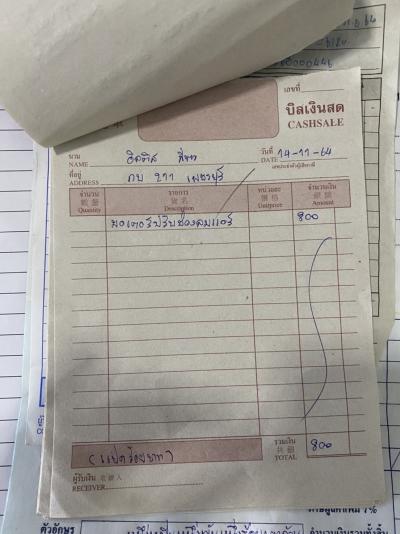 เลขที่
บิลเงินสด
CASHSALE
นาม
NAME
วันที่ 14-11-64
DATE
เลขประจำตัวผู้เสียภาษี
ที่อยู่
ADDRESS
จำนวน รายการ หน่วยละ จำนวนเงิน
數量 貨名 價格 銀額
Quantity Description Unitprice Amount
มอเตอร์ปรับช่องลมแอร์ 800
(แปดร้อยบาท) รวมเงิน 800
共銀
TOTAL
ผู้รับเงิน 收銀人
RECEIVER
ตัวอักษร
จำนวนเงินรวมทั้งสิ้น